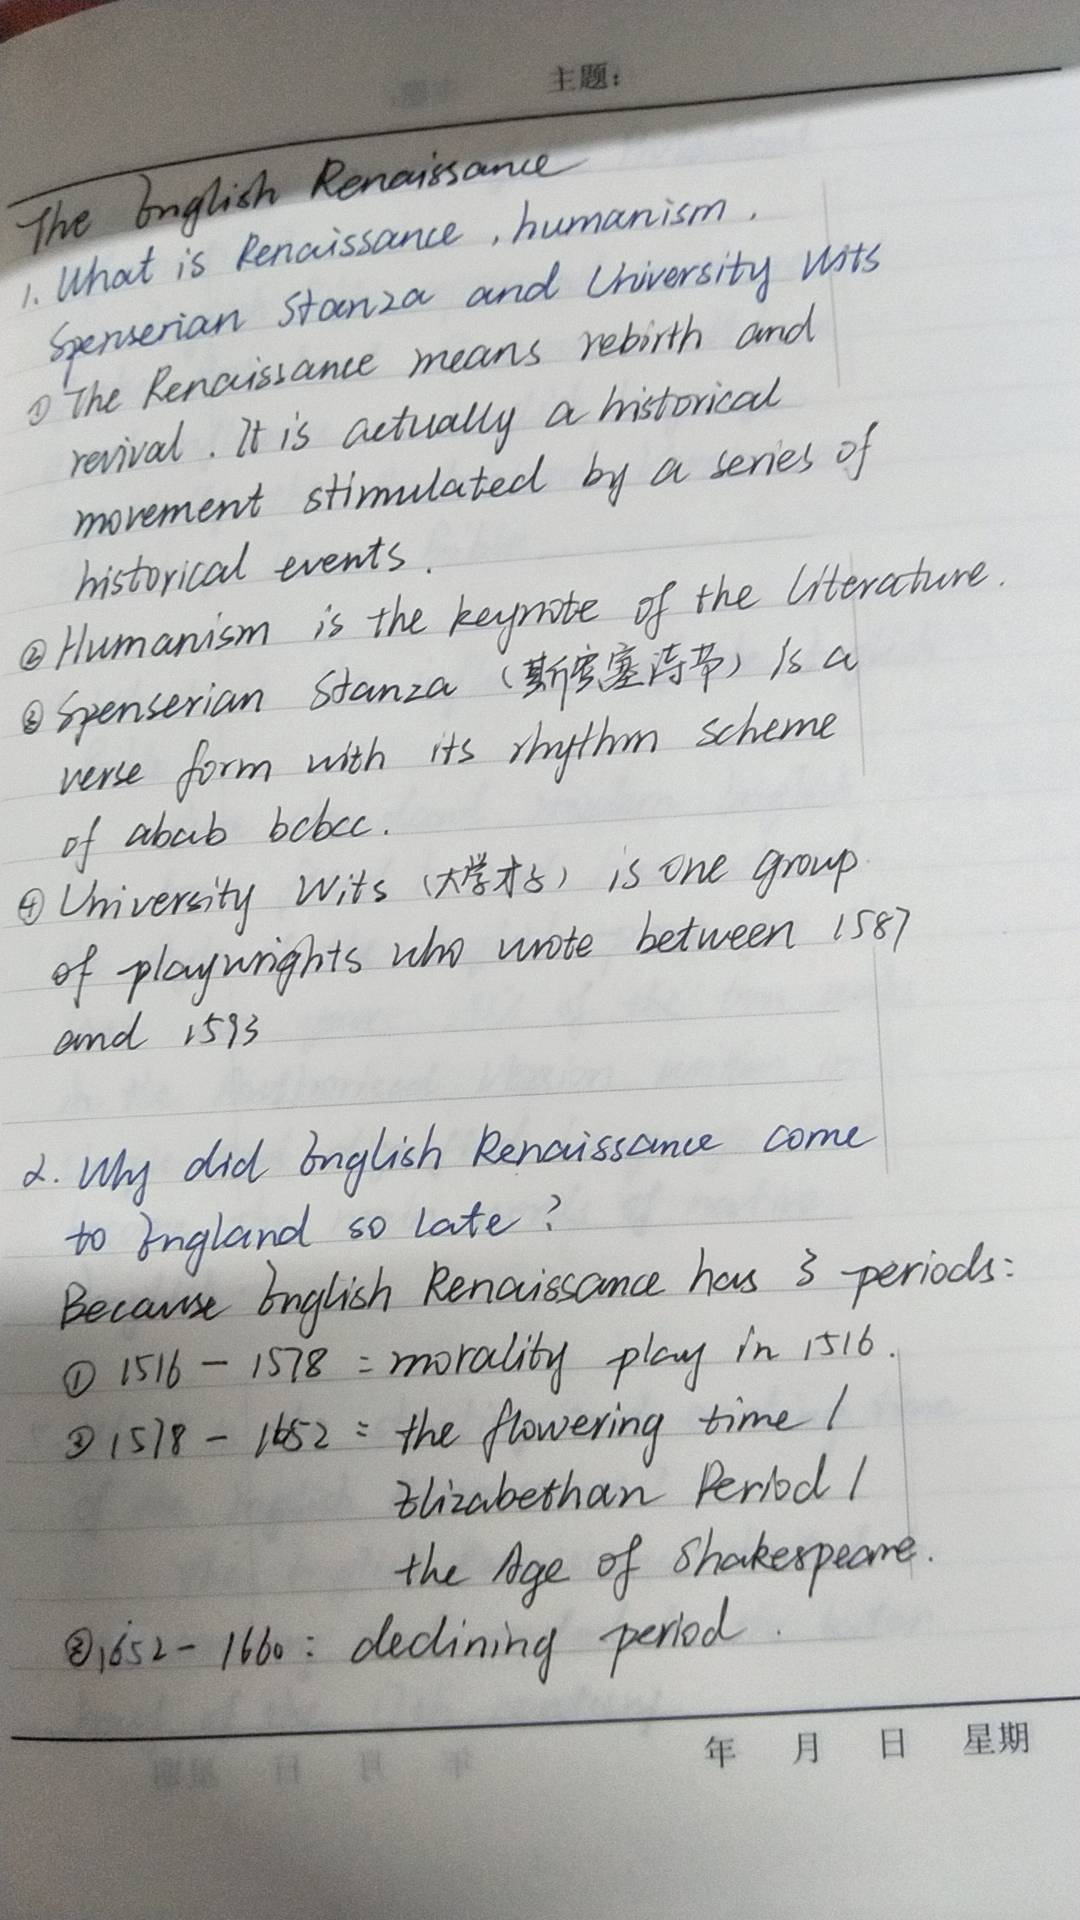 主题:
The English Renaissance
1. What is Renaissance, humanism,
Spenserian Stanza and University Wits
① The Renaissance means rebirth and
revival. It is actually a historical
movement stimulated by a series of
historical events.
② Humanism is the keynote of the Literature.
③ Spenserian Stanza (斯宾塞诗节) is a
verse form with its rhythm scheme
of abab bcbcc.
④ University Wits (大学才子) is one group
of playwrights who wrote between 1587
and 1593
2. Why did English Renaissance come
to England so late?
Because English Renaissance has 3 periods:
① 1516 - 1578 : morality play in 1516.
② 1578 - 1652 : the flowering time /
Elizabethan Period /
the Age of Shakespeare.
③ 1652 - 1660 : declining period.
年 月 日 星期